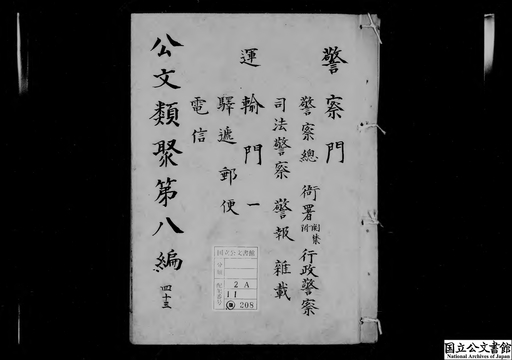 警察門
警察總 衙署 附 圄禁 行政警察
司法警察 警報 雜載
運輸門 一
驛遞郵便
電信
公文類聚第八編 四十三
国立公文書館
分類
配架番号
2 A
11
208
国立公文書館
National Archives of Japan